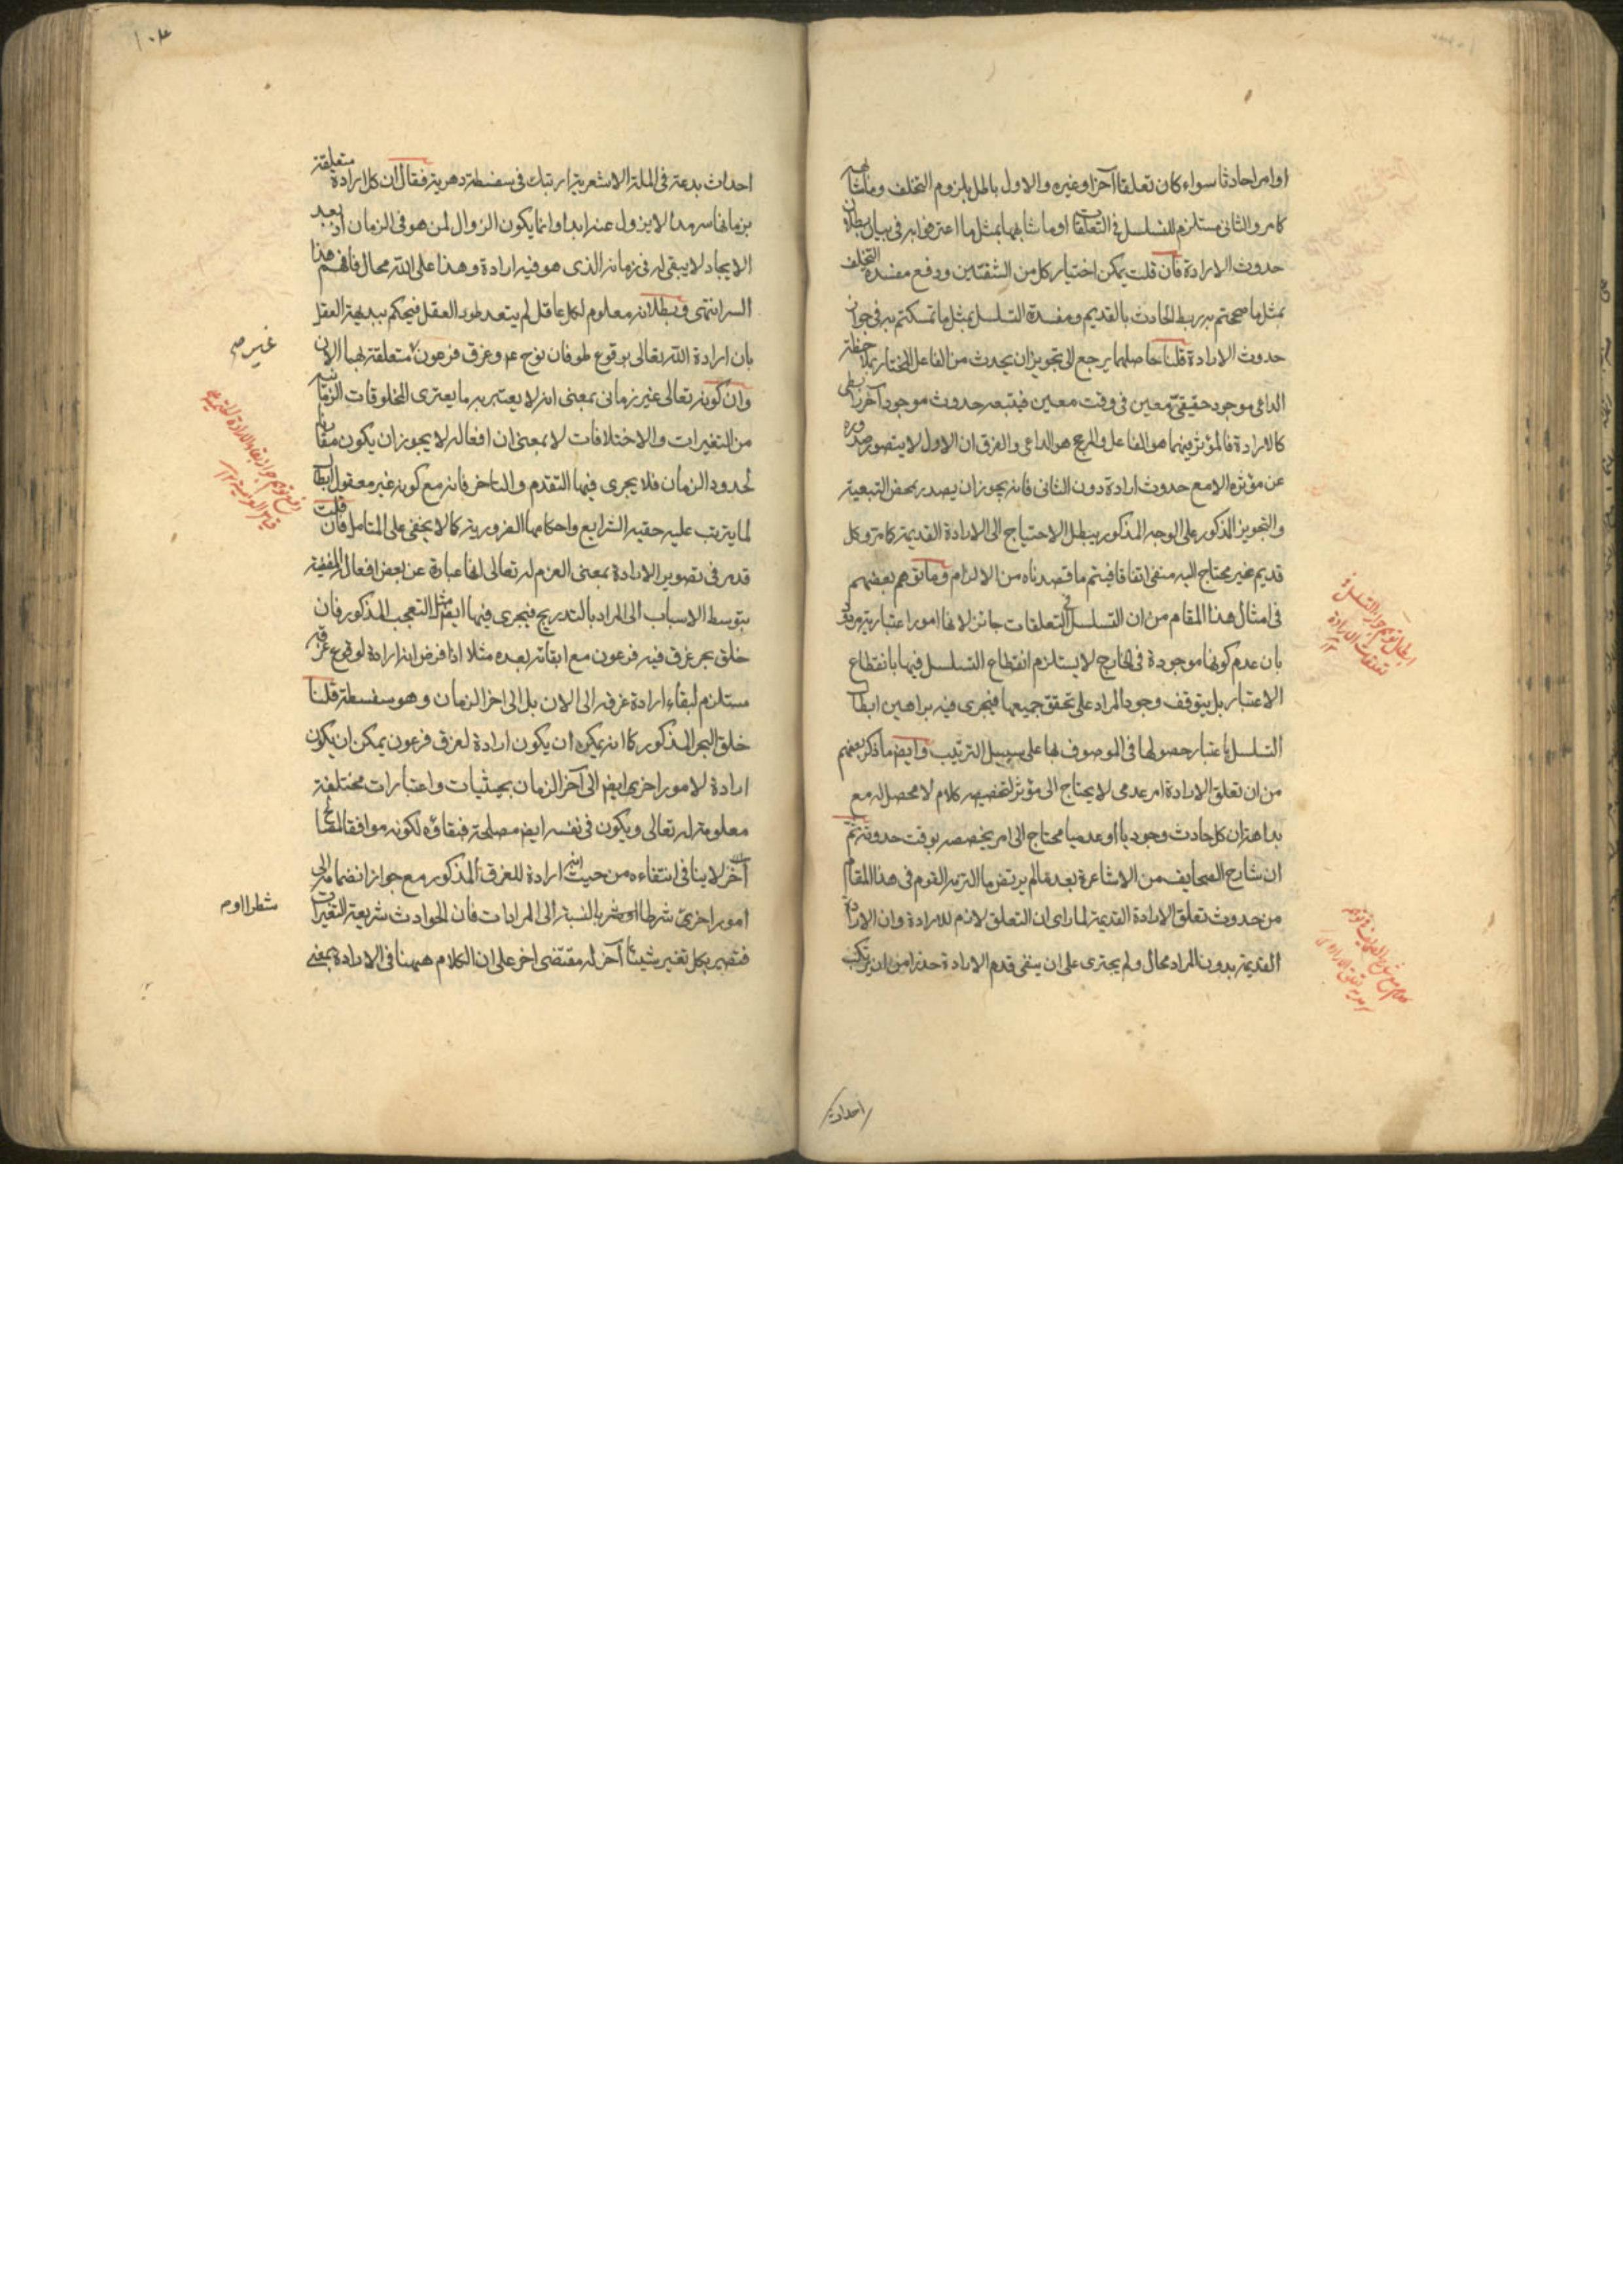 او امرا حادثا سواء كان تعلقا آخر او غيره والاول باطل بلزوم التخلف
كما مر والثانى مستلزم للتسلسل فى التعلقات او ما شابهها بمثل ما اعترض به فى بيان بطلان
حدوث الارادة فان قلت يمكن اختيار كل من الشقتين ودفع مفسدة التخلف
بمثل ما صححتم به ربط الحادث بالقديم ومفسدة التسلسل بمثل ما تمسكتم به فى جواز
حدوث الارادة قلنا حاصلهما يرجع الى تجويز ان يحدث من الفاعل المختار بملاحظة
الداعى موجود حقيقى معين فى وقت معين فيتبعه حدوث موجود آخر رابطى
كالارادة فالمؤثر فيهما هو الفاعل والمرجح هو الداعى والفرق ان الاول لا يتصور صدوره
عن مؤثره الا مع حدوث ارادة دون الثانى فانه يجوز ان يصدر بمحض التبعية
والتجويز المذكور على الوجه المذكور يبطل الاحتياج الى الارادة القديمة كما مر وكل
قديم غير محتاج اليه منفى اتفاقا فيتم ما قصدناه من الالزام وما توهم بعضهم
فى امثال هذا المقام من ان التسلسل فى التعلقات جائز لانها امور اعتبارية مردود
بان عدم كونها موجودة فى الخارج لا يستلزم انقطاع التسلسل فيها بانقطاع
الاعتبار بل يتوقف وجود المراد على تحقق جميعها فيجرى فيه براهين ابطال
التسلسل باعتبار حصولها فى الموصوف بها على سبيل الترتيب وايض ما ذكر بعضهم
من ان تعلق الارادة امر عدمى لا يحتاج الى مؤثر لتخصيصه كلام لا محصل له مع
بداهة ان كل حادث وجوديا او عدميا محتاج الى امر يخصصه بوقت حدوثه ثم
ان شارح الصحايف من الاشاعرة بعد ما لم يرتض ما التزمه القوم فى هذا المقام
من حدوث تعلق الارادة القديمة لما راى ان التعلق لازم للارادة وان الارادة
القديمة بدون المراد محال ولم يجترى على ان ينفى قدم الارادة حذرا من ان يرتكب
ابطال توهم جواز التسلسل فى
تعلقات الارادة
احداث
احداث بدعة فى الملة الاشعرية ارتبك فى سفسطة دهرية فقال ان كل ارادة متعلقة
بزمانها سرمدا لا يزول عنه ابدا وانما يكون الزوال لمن هو فى الزمان اذ بعد
الايجاد لا يبقى له فى زمانه الذى هو فيه ارادة وهذا على الله محال فافهم هذا
السر انتهى وبطلانه معلوم لكل عاقل لم يتعد طور العقل فيحكم ببديهة العقل
بان ارادة الله تعالى بوقوع طوفان نوح ع م وغرق فرعون متعلقة بهما الان
وان كونه تعالى غير زمانى بمعنى انه لا يعتريه ما يعترى المخلوقات الزمانية
من التغيرات والاختلافات لا بمعنى ان افعاله لا يجوز ان يكون مقارنا
لحدود الزمان فلا يجرى فيها التقدم والتاخر فانه مع كونه غير معقول ابطال
لما يترتب عليه حقية الشرايع واحكامها الضرورية كما لا يخفى على المتامل فان قلت
قد مر فى تصوير الارادة بمعنى العزم له تعالى انها عبارة عن بعض افعال
بتوسط الاسباب الى المراد بالتدريج فيجرى فيها ايض مثل التعجب المذكور فان
خلق بحر غرق فيه فرعون مع ابقائه بعده مثلا اذا فرض انه ارادة لوقوع غرقه
مستلزم لبقاء ارادة غرقه الى الان بل الى اخر الزمان وهو سفسطة قلنا
خلق البحر المذكور كما انه يمكن ان يكون ارادة لغرق فرعون يمكن ان يكون
ارادة لامور اخرى ايض الى آخر الزمان بحيثيات واعتبارات مختلفة
معلومة له تعالى ويكون فى نفسه ايض مصلحة فبقاؤه لكونه موافقا لمصالح
آخر لا ينافى انتفاءه من حيث انه ارادة للغرق المذكور مع جواز انضمام
امور اخرى شرطا بالنسبة الى المرادات فان الحوادث شريعة التغيرات
فتصير بكل تغير شيئا آخر له مقتضى اخر على ان الكلام هيهنا فى الارادة بمعنى
غير صح